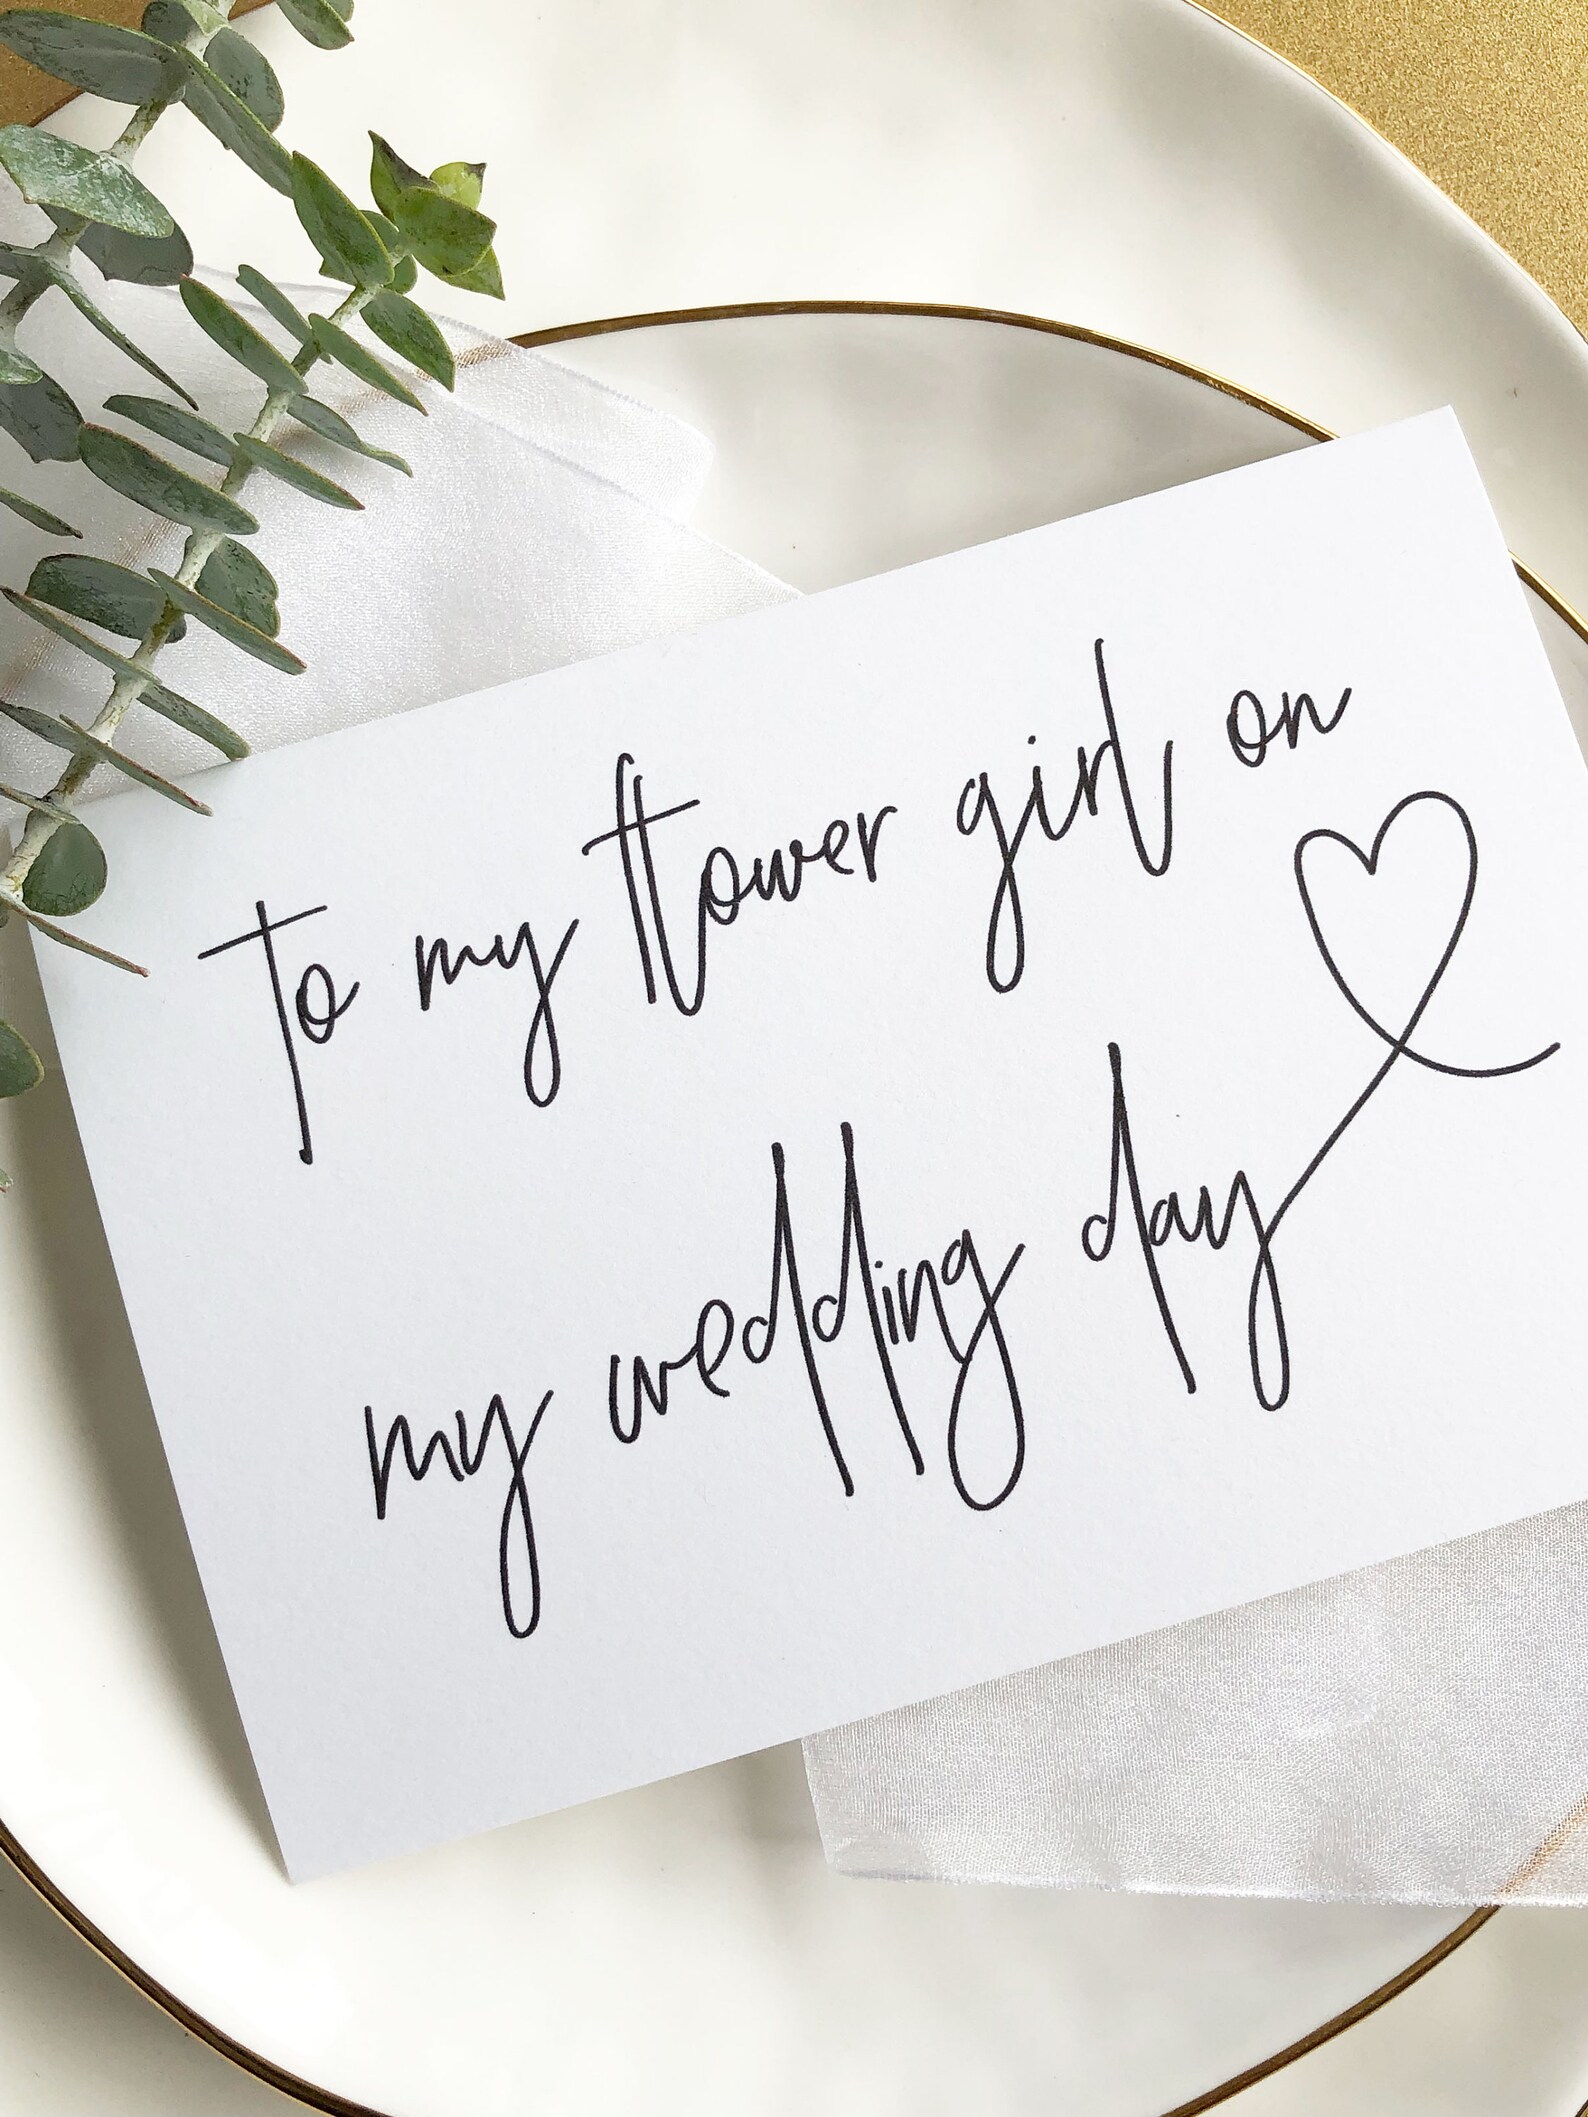 to my flower girl on
my wedding day